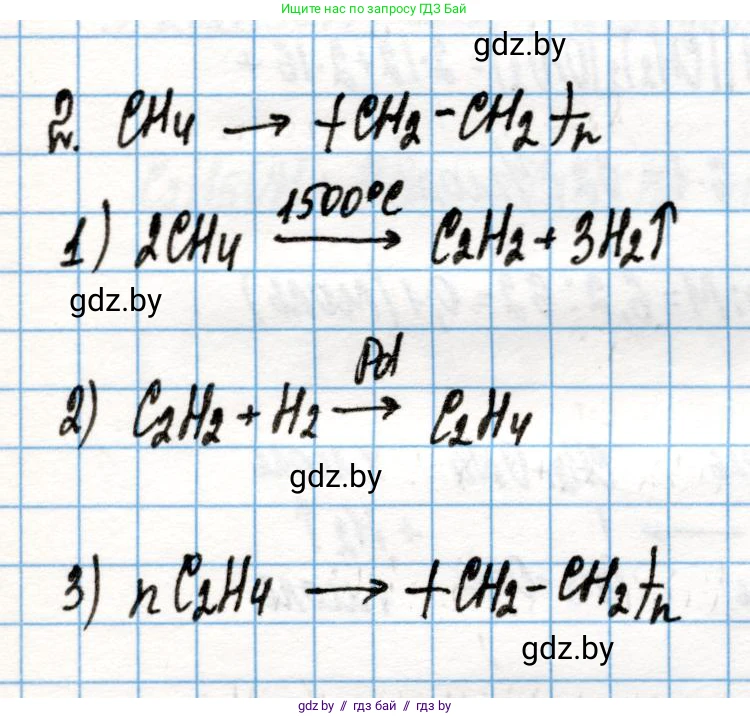 Ищите нас по запросу ГДЗ Бай
gdz.by
2. CH4 → +CH2-CH2+n
1) 2CH4 1500°C → C2H2 + 3H2↑
gdz.by
2) C2H2 + H2 Pd → C2H4
gdz.by
3) nC2H4 → +CH2-CH2+n
gdz.by
gdz.by // гдз бай // гдз by